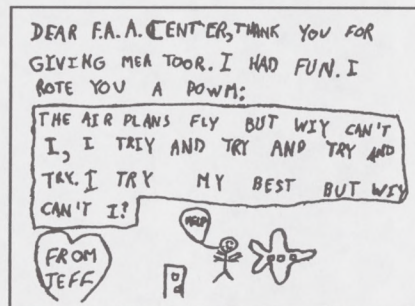 DEAR F.A.A. CENTER, THANK YOU FOR
GIVING MEA TOOR. I HAD FUN. I
ROTE YOU A POWM:
THE AIR PLANS FLY BUT WIY CAN'T
I, I TRIY AND TRY AND TRY AND
TRY. I TRY MY BEST BUT WIY
CAN'T I?
HELP
FROM
JEFF